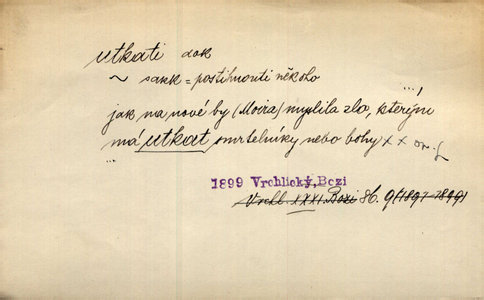 utkati dok
~ = postihnouti někoho
jak na nové by (Moira) myslila zlo, kterým
má utkat smrtelníky nebo bohy × ×
1899 Vrchlický, Bozi
Vrchl. XXXI. Bozi 86. 9 (1897-1899)